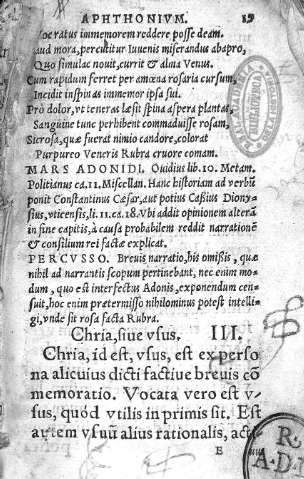 APHTHONIVM. 19
oce ratus immemorem reddere posse deam.
aud mora, percutitur Iuuenis miserandus abapro,
Quo simulac nouit, currit & alma Venus.
Cum rapidum ferret per amœna rosaria cursum,
Incidit inspinas immemor ipsa sui.
Prò dolor, vt teneras læsit spina aspera plantas,
Sanguine tunc perhibent commaduisse rosam,
Sic rosa, quæ fuerat nimio candore, colorat
Purpureo Veneris Rubra cruore comam.
MARS ADONIDI. Ouidius lib. 10. Metam.
Politianus ca. 11. Miscellan. Hanc historiam ad verbū
ponit Constantinus Cæsar, aut potius Caßius Diony-
sius, vticensis, li. 11. ca. 18. Vbi addit opinionem alterā
in fine capitis, à causa probabilem reddit narrationē
& consilium rei factæ explicat.
PERCVSSO. Breuis narratio, his omißis, quæ
nihil ad narrantis scopum pertinebant, nec enim mo-
dum, quo est interfectus Adonis, exponendum cen-
suit, hoc enim prætermisso nihilominus potest intelli-
gi, vnde sit rosa facta Rubra.
Chria, siue vsus. III.
Chria, id est, vsus, est ex perso
na alicuius dicti factiue breuis cō
memoratio. Vocata vero est v-
sus, quòd vtilis in primis sit. Est
autem vsuū alius rationalis, acti-
E
R.
A.D.